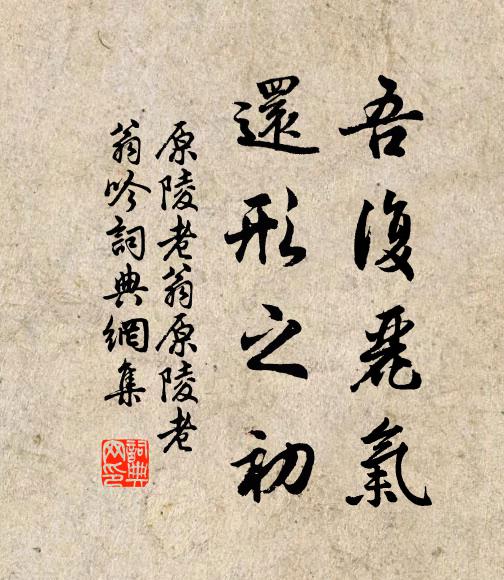 吾復麗氣
還形之初
原陵老翁原陵老
翁吟詞典網集
詞典
网印